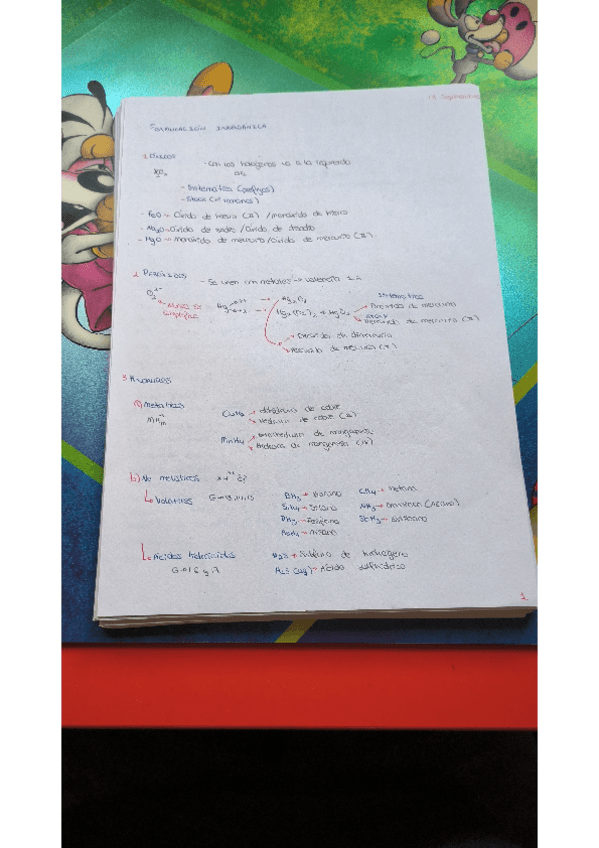 FORMULACIÓN INORGÁNICA
1. Óxidos
- Con los halógenos va a la izquierda
- Sistemática (prefijos)
- Stock (nº romanos)
- FeO → Óxido de hierro (II) / monóxido de hierro
- Na2O → Óxido de sodio / Óxido de disodio
- HgO → monóxido de mercurio / Óxido de mercurio (II).
2. Peróxidos
- Se unen con metales → valencia 1, 2
O2 2-
→ Nunca se simplifica
Hg2O2
Hg2(O2)2 → HgO2
Sistemática
Peróxido de mercurio (II)
Dióxido de dimercurio
Peróxido de mercurio (I)
3. Hidruros
a) Metálicos
CuH2 → dihidruro de cobre
Hidruro de cobre (II)
MnH4 → tetrahidruro de manganeso
Hidruro de manganeso (IV)
b) No metálicos
Volátiles G-13, 14, 15
BH3 → Borano CH4 → Metano
SiH4 → Silano NH3 → Amoniaco (Azano)
PH3 → Fosfano SbH3 → Estibano
AsH3 → Arsano
Ácidos hidrácidos H2S → Sulfuro de hidrógeno
G-16 y 17 H2S (aq) → Ácido sulfhídrico
1